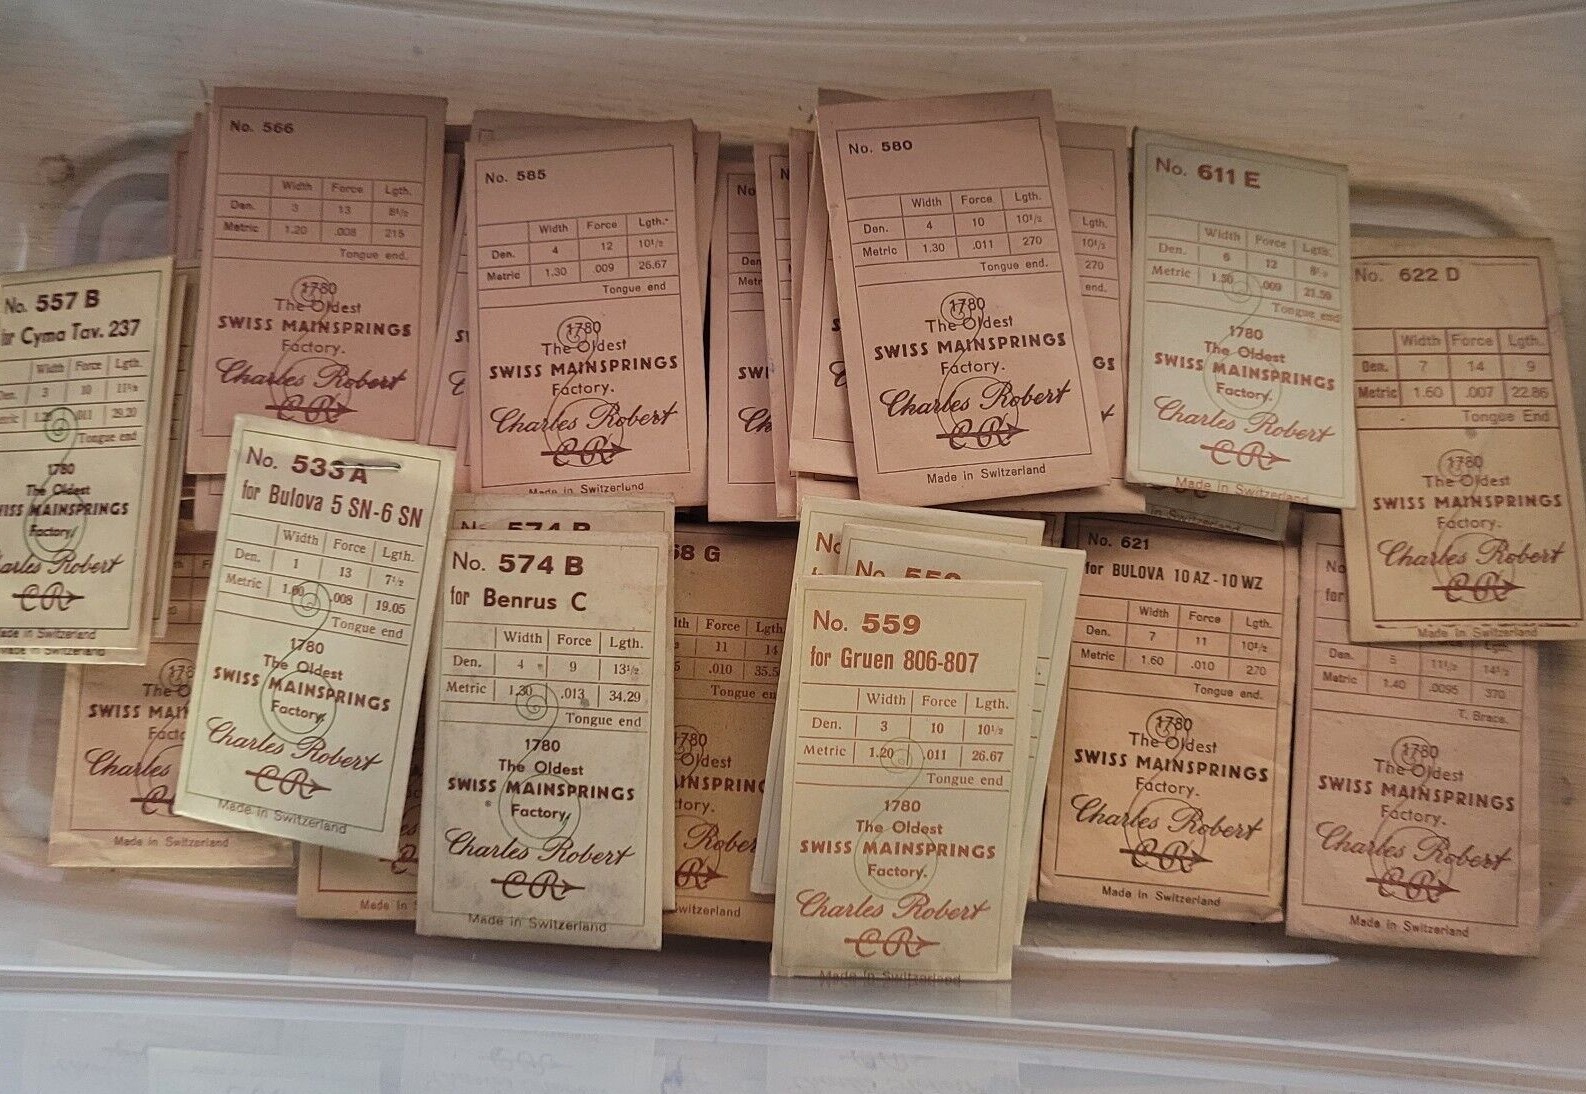 No. 566
Width Force Lgth.
Den. 3 13 8½
Metric 1.20 .008 215
Tongue end.
1780
The Oldest
SWISS MAINSPRINGS
Factory.
Charles Robert
CR
No. 585
Width Force Lgth.
Den. 4 12 10½
Metric 1.30 .009 26.67
Tongue end
1780
The Oldest
SWISS MAINSPRINGS
Factory.
Charles Robert
CR
Made in Switzerland
No. 580
Width Force Lgth.
Den. 4 10 10½
Metric 1.30 .011 270
Tongue end.
1780
The Oldest
SWISS MAINSPRINGS
Factory.
Charles Robert
CR
Made in Switzerland
Lgth.
10½
270
No. 611 E
Width Force Lgth.
Den. 6 12 8½
Metric 1.50 .009 21.59
Tongue end
1780
The Oldest
SWISS MAINSPRINGS
Factory.
Charles Robert
CR
Made in Switzerland
No. 622 D
Width Force Lgth.
Den. 7 14 9
Metric 1.60 .007 22.86
Tongue End
1780
The Oldest
SWISS MAINSPRINGS
Factory.
Charles Robert
CR
Made in Switzerland
No. 557 B
Cyma Tav. 237
Width Force Lgth.
3 10 11½
.011 29.20
Tongue end
1780
The Oldest
MAINSPRINGS
Factory
Robert
CR
Switzerland
No. 533 A
for Bulova 5 SN-6 SN
Width Force Lgth.
Den. 1 13 7½
Metric 1.00 .008 19.05
Tongue end
1780
The Oldest
SWISS MAINSPRINGS
Factory.
Charles Robert
CR
Made in Switzerland
SWISS
Charles
Made in Switzerland
No. 574 B
No. 574 B
for Benrus C
Width Force Lgth.
Den. 4 9 13½
Metric 1.30 .013 34.29
Tongue end
1780
The Oldest
SWISS MAINSPRINGS
Factory.
Charles Robert
CR
Made in Switzerland
G
Force
11 14
.010
Tongue
1780
Oldest
No. 559
No. 559
for Gruen 806-807
Width Force Lgth.
Den. 3 10 10½
Metric 1.20 .011 26.67
Tongue end
1780
The Oldest
SWISS MAINSPRINGS
Factory.
Charles Robert
CR
Made in Switzerland
No. 621
for BULOVA 10 AZ - 10 WZ
Width Force Lgth.
Den. 7 11 10½
Metric 1.60 .010 270
Tongue end.
1780
The Oldest
SWISS MAINSPRINGS
Factory.
Charles Robert
CR
Made in Switzerland
No
for
Den. 5 11½ 14½
Metric 1.40 .0095 370
T. Brace.
1780
The Oldest
SWISS MAINSPRINGS
Factory.
Charles Robert
CR
Made in Switzerland